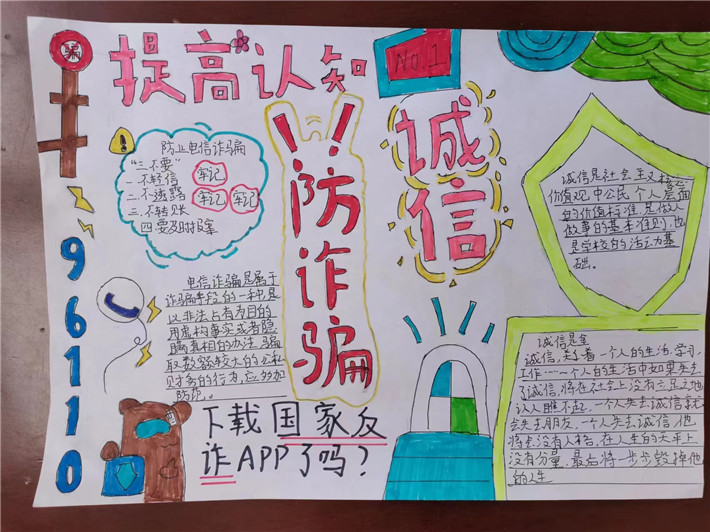 骗
提高认知
NO.1
防止电信诈骗
“三不要”
一不轻信
二不透露
三不转账
四要及时报案
牢记
牢记
牢记
96110
电信诈骗是属于
诈骗手段的一种是
以非法占有为目的
用虚构事实或者隐
瞒真相的办法,骗
取数额较大的公私
财务的行为,应多加
防范。
!!防诈骗
诚信
诚信是社会主义核心
价值观中公民个人层面
的价值标准,是做人
做事的基本准则,也
是学校的活动基
础。
诚信是金
诚信,关乎着一个人的生活,学习,
工作……一个人的生活中如果失去
了诚信,将在社会上没有立足之地
让人瞧不起,一个人失去诚信就
会失去朋友,一个人失去诚信,他
将会没有人格,在人生的天平上
没有分量,最后将一步步毁掉他
的人生
下载国家反
诈APP了吗?